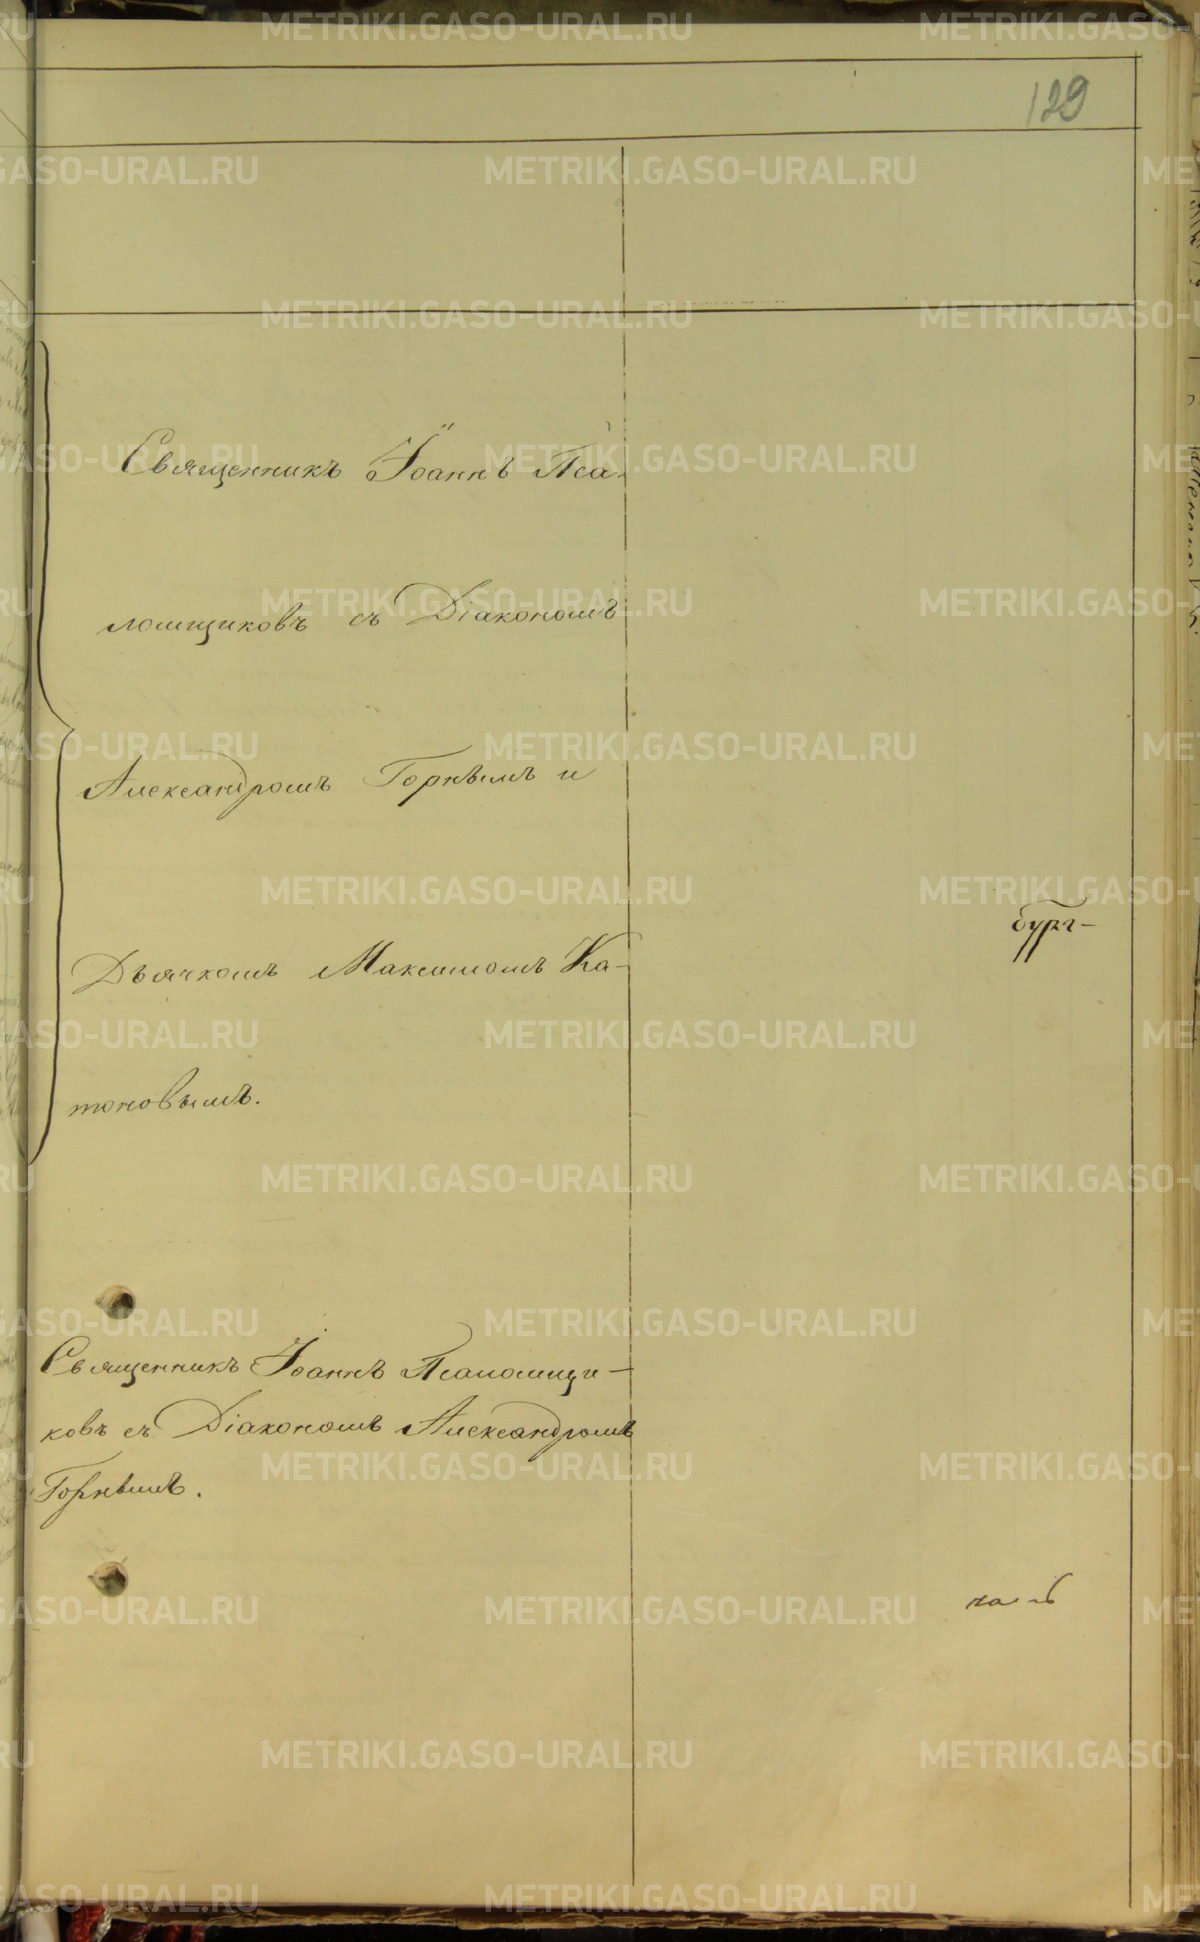 129
Священникъ Іоаннъ Пса-
ломщиковъ съ Діакономъ
Александромъ Горнымъ и
Дьячкомъ Максимомъ Ка-
тоновымъ.
бург-
Священникъ Іоаннъ Псаломщи-
ковъ съ Діакономъ Александромъ
Горнымъ.
METRIKI.GASO-URAL.RU